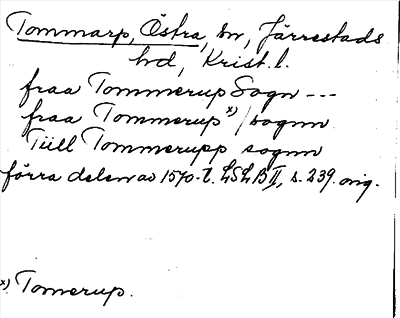 Tommarp, Östra, sn, Järrestads
hd, Krist. l.
fraa Tommerup Sogn ---
fraa Tommerup x) / sognn
Tiill Tommerupp sognn
förra delen av 1570-t. LSLB II, s. 239. orig.
x) Tomerup.